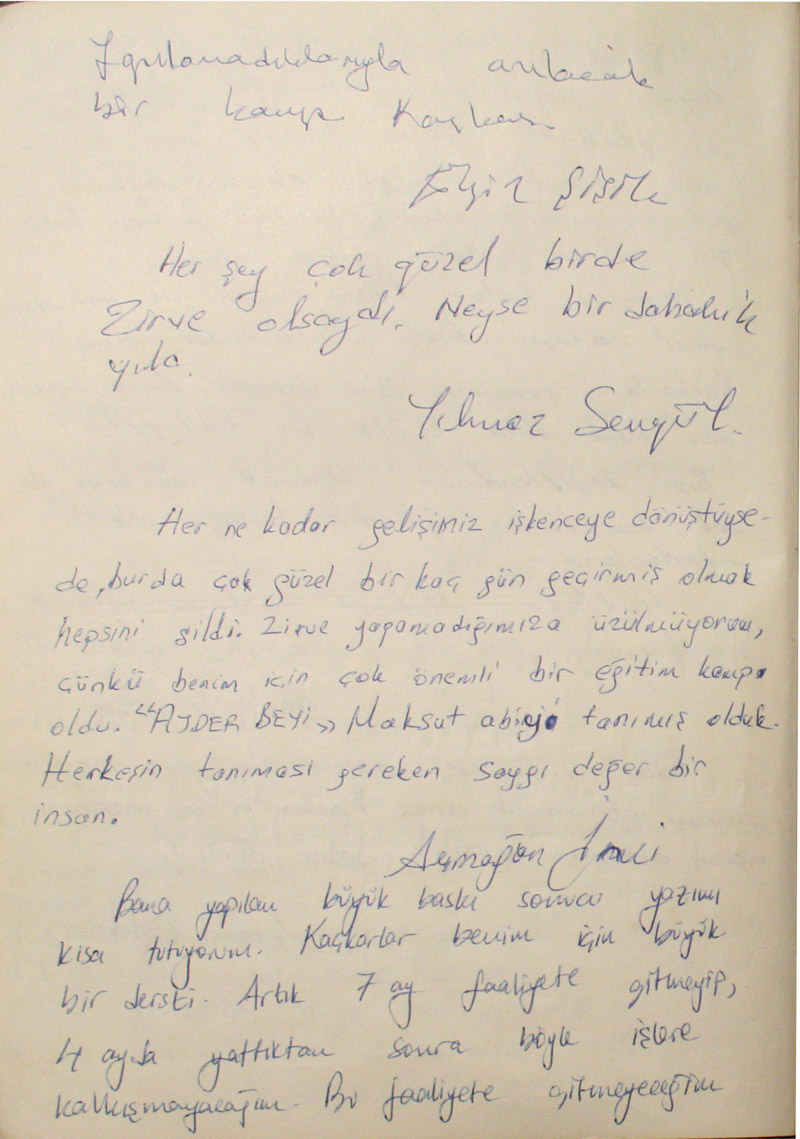 Yapılamadıklarıyla anılacak
bir kamp Kaçkar.
Her şey çok güzel birde
Zirve olsaydı. Neyse bir dahaki
yıla.
Yılmaz Sengül.
Her ne kadar gelişimiz işkenceye dönüştüyse-
de, burda çok güzel bir kaç gün geçirmiş olmak
hepsini sildi. Zirve yapamadığımıza üzülmüyorum,
çünkü benim için çok önemli bir eğitim kampı
oldu. "AYDER BEYİ" Maksut abiyi tanımış olduk.
Herkesin tanıması gereken saygı değer bir
insan.
Armağan
Bana yapılan büyük baskı sonucu yazımı
kısa tutuyorum. Kaçkarlar benim için büyük
bir dersti. Artık 7 ay faaliyete gitmeyip,
4 ayda yattıktan sonra böyle işlere
kalkışmayacağım. Bu faaliyete gitmeyeceğim